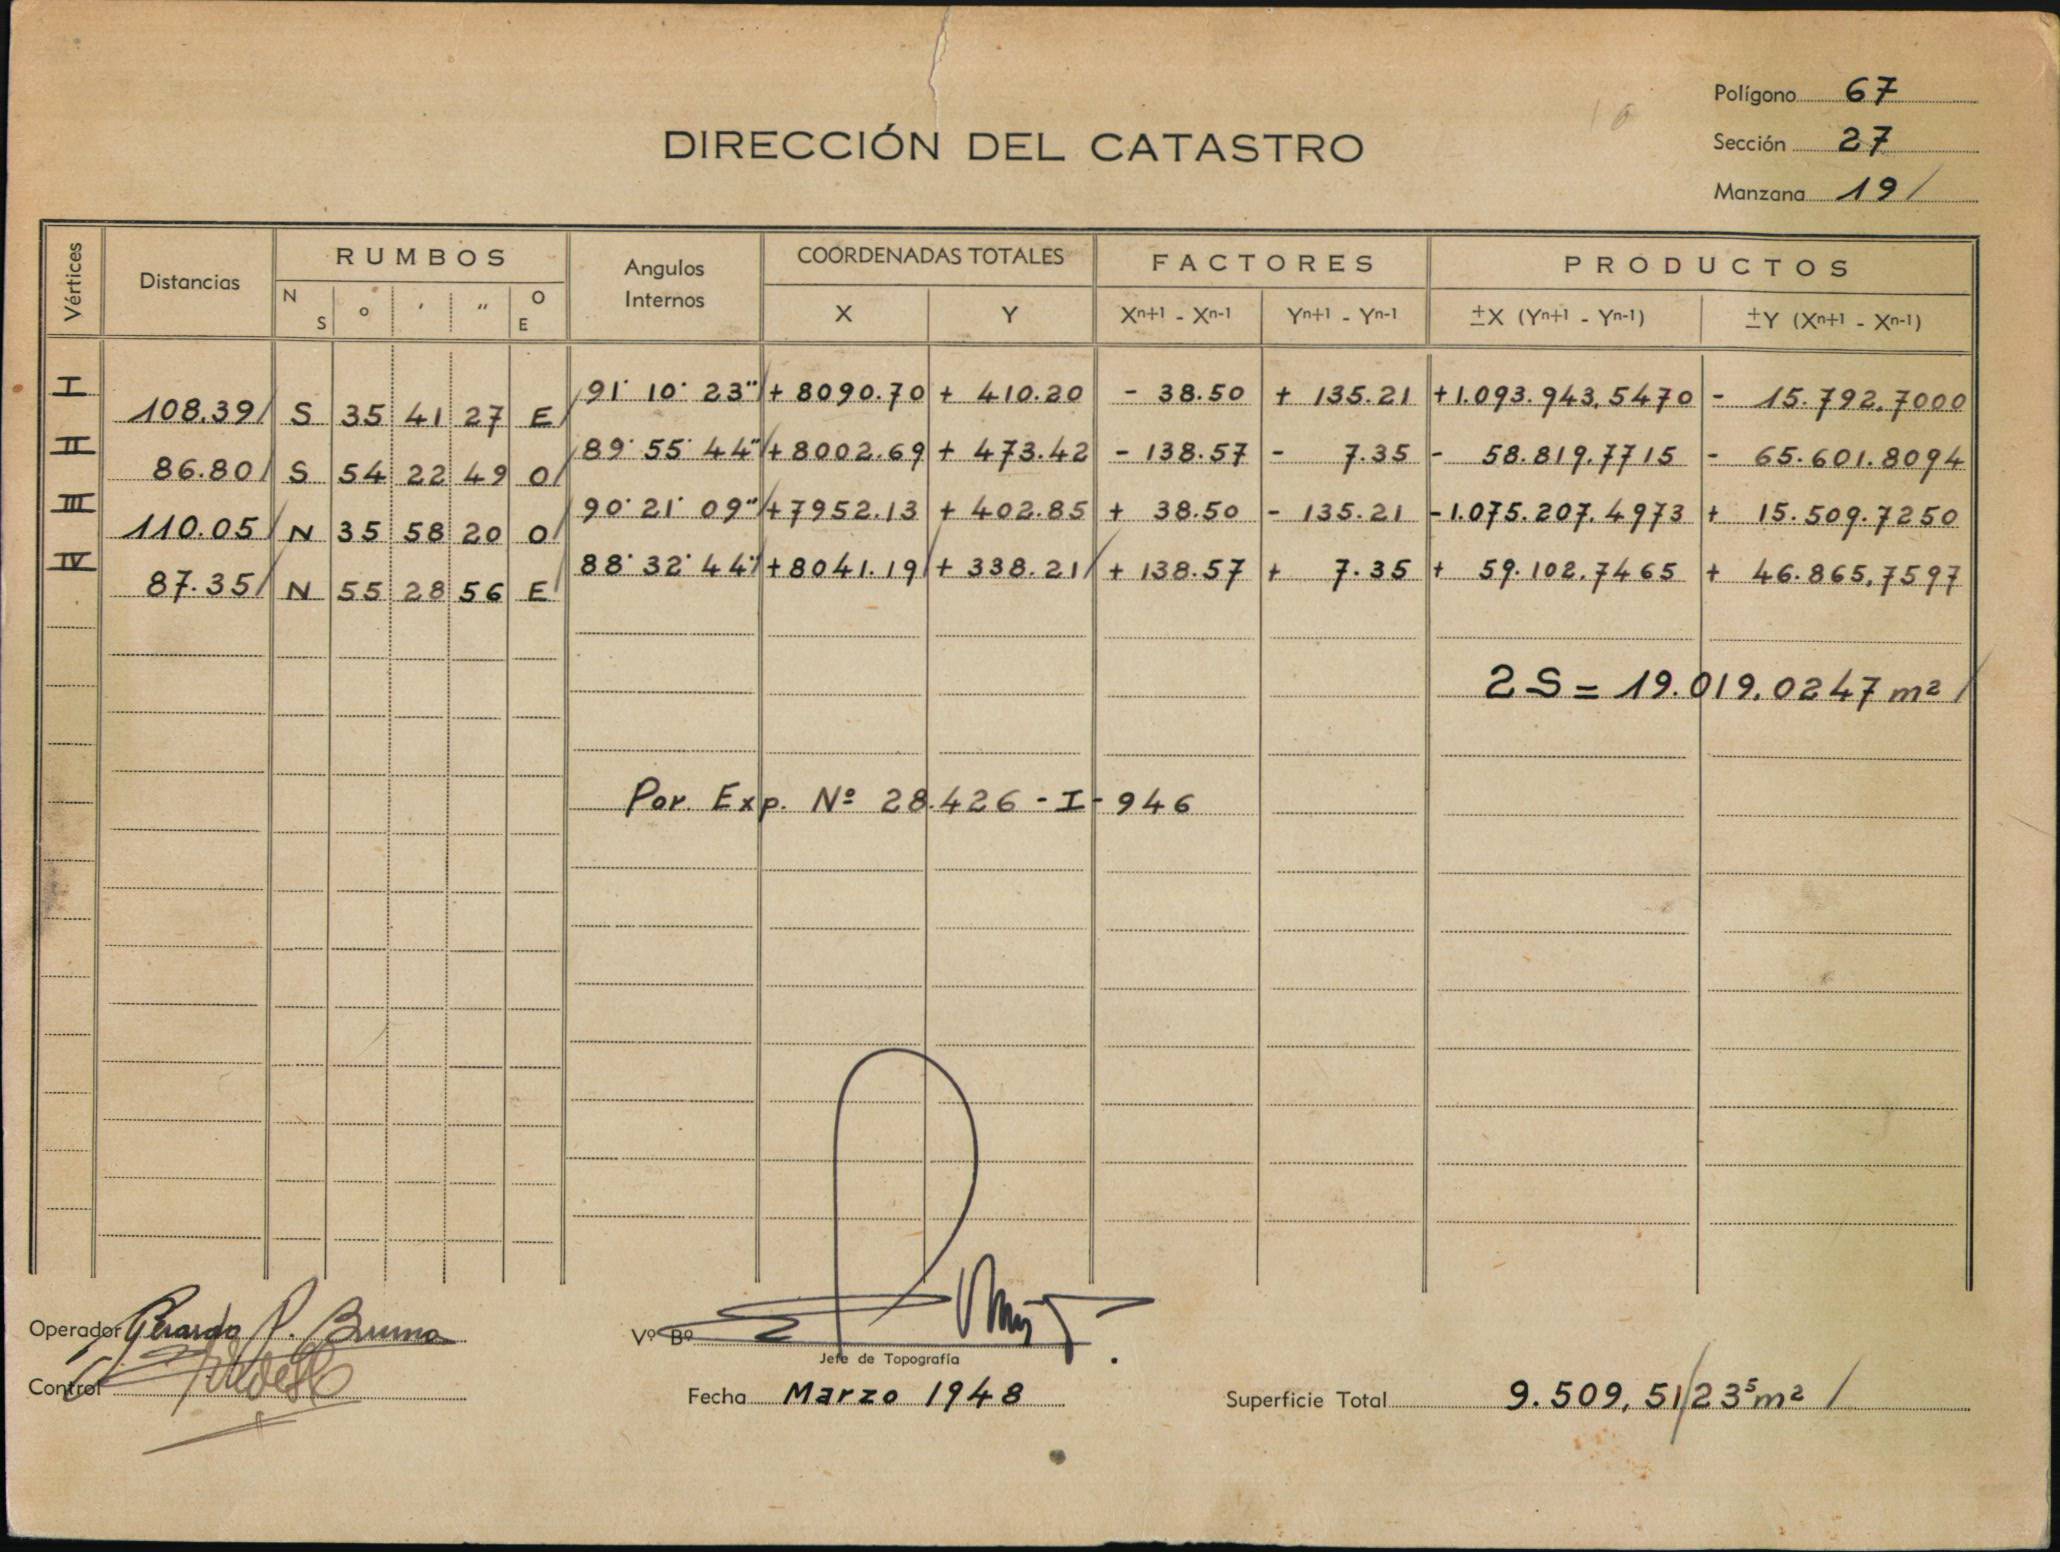 Polígono 67
DIRECCIÓN DEL CATASTRO
Sección 27
Manzana 19/
Vértices Distancias RUMBOS Angulos Internos COORDENADAS TOTALES FACTORES PRODUCTOS
N S o ' " O E X Y Xn+1 - Xn-1 Yn+1 - Yn-1 ±X (Yn+1 - Yn-1) ±Y (Xn+1 - Xn-1)
I 91° 10' 23" + 8090.70 + 410.20 - 38.50 + 135.21 +1.093.943,5470 - 15.792,7000
108.39/ S 35 41 27 E/
II 89° 55' 44" +8002.69 + 473.42 - 138.57 - 7.35 - 58.819,7715 - 65.601.8094
86.80/ S 54 22 49 O/
III 90° 21' 09" +7952.13 + 402.85 + 38.50 - 135.21 -1.075.207,4973 + 15.509.7250
110.05/ N 35 58 20 O/
IV 88° 32' 44" +8041.19/ + 338.21/ + 138.57 + 7.35 + 59.102,7465 + 46.865,7597
87.35/ N 55 28 56 E/
2S = 19.019,0247 m² /
Por. Exp. Nº 28.426 - I - 946
Operador Gerardo P. Bruno
Vº Bº
Jefe de Topografía
Control
Fecha Marzo 1948
Superficie Total 9.509,51/23⁵m² /